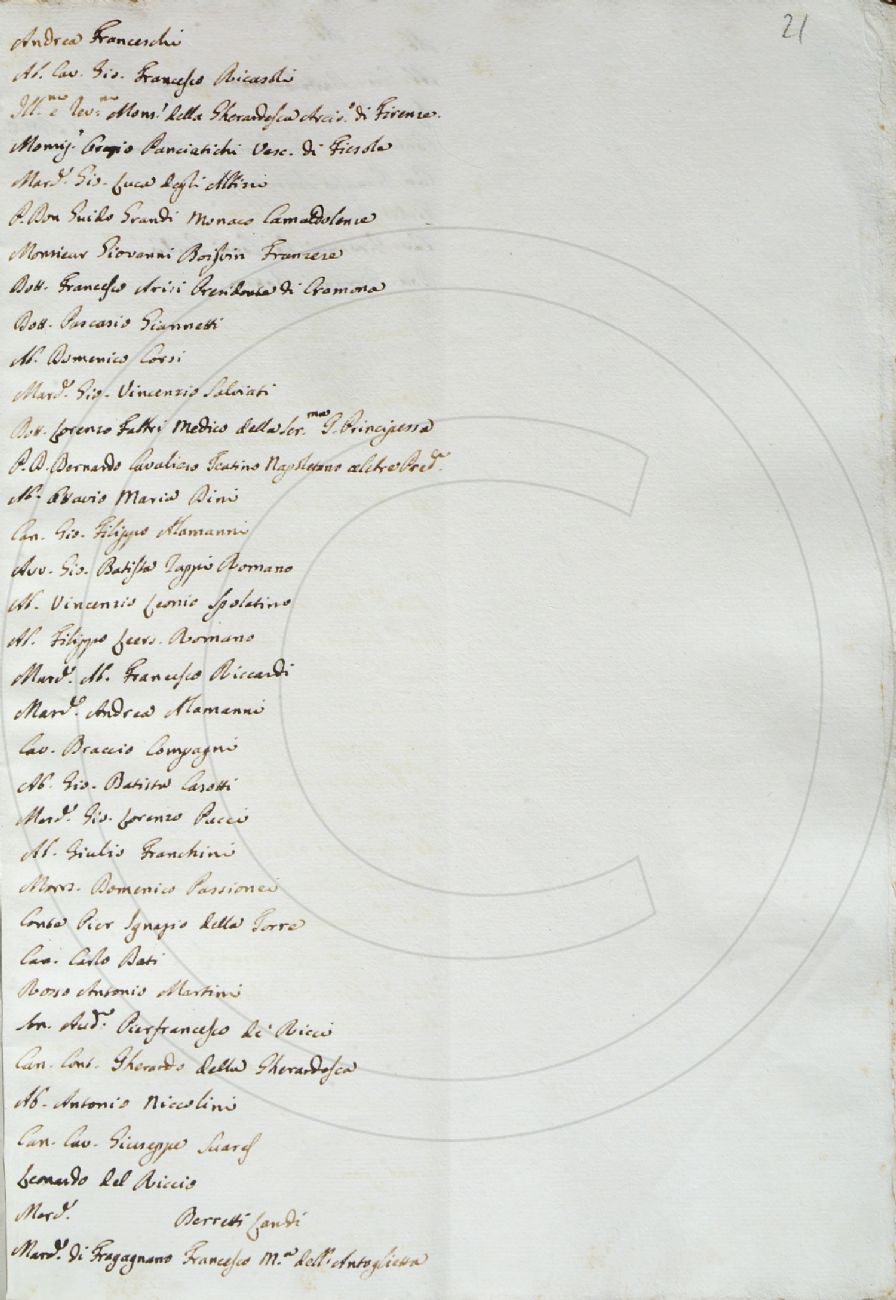 21
Andrea Franceschi
Ab. Cav. Gio. Francesco Ricasoli
Ill.mo e Rev.mo Mons.r della Gherardesca Arciv.o di Firenze.
Monsig.r Orazio Panciatichi Vesc. di Fiesole
March.e Gio. Luca degli Albizi
P. Don Guido Grandi Monaco Camaldolense
Monsieur Giovanni Boisvin Franzese
Dott. Francesco Arisi Cremona
Dott. Pascasio Giannetti
Ab. Domenico Corsi
March.e Gio. Vincenzio Salviati
Dott. Lorenzo Medico della Ser.ma G. Principessa
P. D. Bernardo Teatino Napoletano celebre Pred.e
Ab. Ottavio Maria Dini
Can. Gio. Filippo Alamanni
Avv. Gio. Batista Zappi Romano
Ab. Vincenzio Leonio Spoletino
Ab. Filippo Leers. Romano
March.e Ab. Francesco Riccardi
March.e Andrea Alamanni
Cav. Braccio Compagni
Ab. Gio. Batista Casotti
March.e Gio. Lorenzo Pucci
Ab. Giulio Franchini
Mons. Domenico Passionei
Conte Pier Ignazio della Torre
Cav. Carlo Bati
Rosso Antonio Martini
Sen. Aud.re Pierfrancesco de' Ricci
Can. Cont. Gherardo della Gherardesca
Ab. Antonio Niccolini
Can. Cav. Giuseppe Suares
Leonardo del Riccio
March.e Berretti Landi
March.e di Fragagnano Francesco M.a dell'Antoglietta